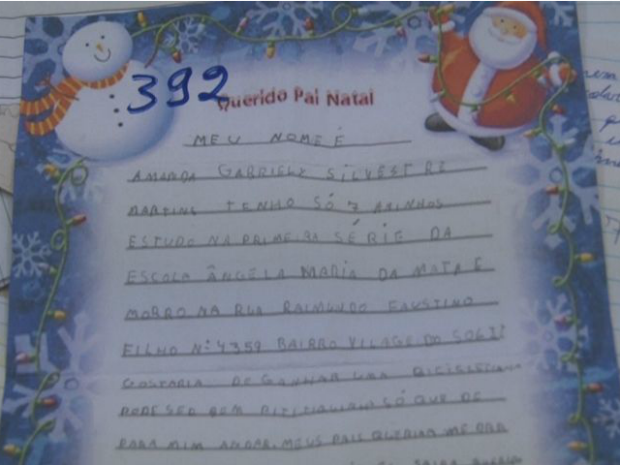 392
Querido Pai Natal
MEU NOME É
AMANDA GABRIELY SILVESTRE
MARTINS TENHO SÓ 7 AninHOS
ESTUDO NA PRIMEIRA SÉRIE DA
ESCOLA ÂNGELA MARIA DA MATA E
MORRO NA RUA RAIMUNDO FAUSTINO
FILHO Nº 4359 BAIRRO VILAGE DO
GOSTARIA DE GANHAR UMA
PODE SER BEM SÓ QUE DE
PARA MIM ANDAR. MEUS PAIS QUERIAM ME DAR